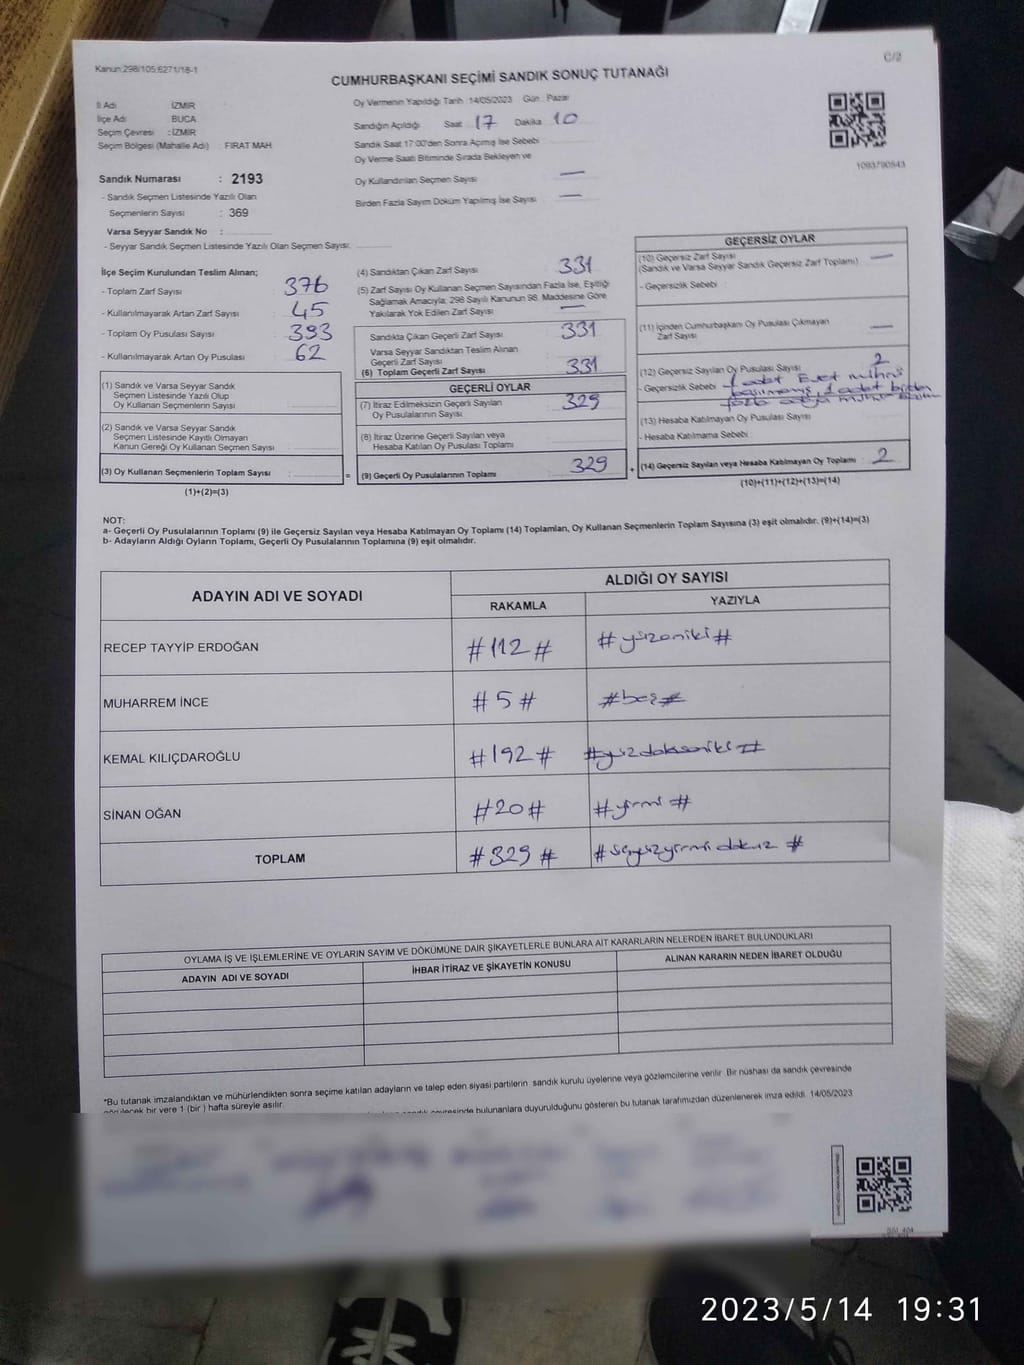 Kanun:298/105:6271/18-1
C/2
CUMHURBAŞKANI SEÇİMİ SANDIK SONUÇ TUTANAĞI
İl Adı İZMİR
İlçe Adı BUCA
Seçim Çevresi : İZMİR
Seçim Bölgesi (Mahalle Adı) FIRAT MAH
Oy Vermenin Yapıldığı Tarih 14/05/2023 Gün Pazar
Sandığın Açıldığı Saat 17 Dakika 10
Sandık Saat 17:00'den Sonra Açımış İse Sebebi
Oy Verme Saati Bitiminde Sırada Bekleyen ve
Oy Kullandırılan Seçmen Sayısı —
Birden Fazla Sayım Döküm Yapılmış İse Sayısı —
1093790543
Sandık Numarası : 2193
- Sandık Seçmen Listesinde Yazılı Olan
Seçmenlerin Sayısı : 369
Varsa Seyyar Sandık No :
- Seyyar Sandık Seçmen Listesinde Yazılı Olan Seçmen Sayısı:
İlçe Seçim Kurulundan Teslim Alınan;
- Toplam Zarf Sayısı 376
- Kullanılmayarak Artan Zarf Sayısı 45
- Toplam Oy Pusulası Sayısı 393
- Kullanılmayarak Artan Oy Pusulası 62
(1) Sandık ve Varsa Seyyar Sandık
Seçmen Listesinde Yazılı Olup
Oy Kullanan Seçmenlerin Sayısı
(2) Sandık ve Varsa Seyyar Sandık
Seçmen Listesinde Kayıtlı Olmayan
Kanun Gereği Oy Kullanan Seçmen Sayısı
(3) Oy Kullanan Seçmenlerin Toplam Sayısı
(1)+(2)=(3)
=
(4) Sandıktan Çıkan Zarf Sayısı 331
(5) Zarf Sayısı Oy Kullanan Seçmen Sayısından Fazla İse, Eşitliği
Sağlamak Amacıyla; 298 Sayılı Kanunun 98. Maddesine Göre
Yakılarak Yok Edilen Zarf Sayısı —
Sandıkta Çıkan Geçerli Zarf Sayısı 331
Varsa Seyyar Sandıktan Teslim Alınan
Geçerli Zarf Sayısı
(6) Toplam Geçerli Zarf Sayısı 331
GEÇERLİ OYLAR
(7) İtiraz Edilmeksizin Geçerli Sayılan
Oy Pusulalarının Sayısı 329
(8) İtiraz Üzerine Geçerli Sayılan veya
Hesaba Katılan Oy Pusulası Toplamı
(9) Geçerli Oy Pusulalarının Toplamı 329
+
GEÇERSİZ OYLAR
(10) Geçersiz Zarf Sayısı —
(Sandık ve Varsa Seyyar Sandık Geçersiz Zarf Toplamı)
- Geçersizlik Sebebi :
(11) İçinden Cumhurbaşkanı Oy Pusulası Çıkmayan
Zarf Sayısı —
(12) Geçersiz Sayılan Oy Pusulası Sayısı 2
- Geçersizlik Sebebi 1 adet Evet mührü
basılmamış, 1 adet birden
fazla
(13) Hesaba Katılmayan Oy Pusulası Sayısı
- Hesaba Katılmama Sebebi
(14) Geçersiz Sayılan veya Hesaba Katılmayan Oy Toplamı 2
(10)+(11)+(12)+(13)=(14)
NOT:
a- Geçerli Oy Pusulalarının Toplamı (9) ile Geçersiz Sayılan veya Hesaba Katılmayan Oy Toplamı (14) Toplamları, Oy Kullanan Seçmenlerin Toplam Sayısına (3) eşit olmalıdır. (9)+(14)=(3)
b- Adayların Aldığı Oyların Toplamı, Geçerli Oy Pusulalarının Toplamına (9) eşit olmalıdır.
ADAYIN ADI VE SOYADI
ALDIĞI OY SAYISI
RAKAMLA YAZIYLA
RECEP TAYYİP ERDOĞAN #112# #yüzoniki#
MUHARREM İNCE #5# #beş#
KEMAL KILIÇDAROĞLU #192# #yüzdoksaniki#
SİNAN OĞAN #20# #yirmi#
TOPLAM #329#
OYLAMA İŞ VE İŞLEMLERİNE VE OYLARIN SAYIM VE DÖKÜMÜNE DAİR ŞİKAYETLERLE BUNLARA AİT KARARLARIN NELERDEN İBARET BULUNDUKLARI
ADAYIN ADI VE SOYADI İHBAR İTİRAZ VE ŞİKAYETİN KONUSU ALINAN KARARIN NEDEN İBARET OLDUĞU
*Bu tutanak imzalandıktan ve mühürlendikten sonra seçime katılan adayların ve talep eden siyasi partilerin sandık kurulu üyelerine veya gözlemcilerine verilir. Bir nüshası da sandık çevresinde
görülecek bir yere 1 (bir) hafta süreyle asılır.
sandık çevresinde bulunanlara duyurulduğunu gösteren bu tutanak tarafımızdan düzenlenerek imza edildi. 14/05/2023
2023/5/14 19:31